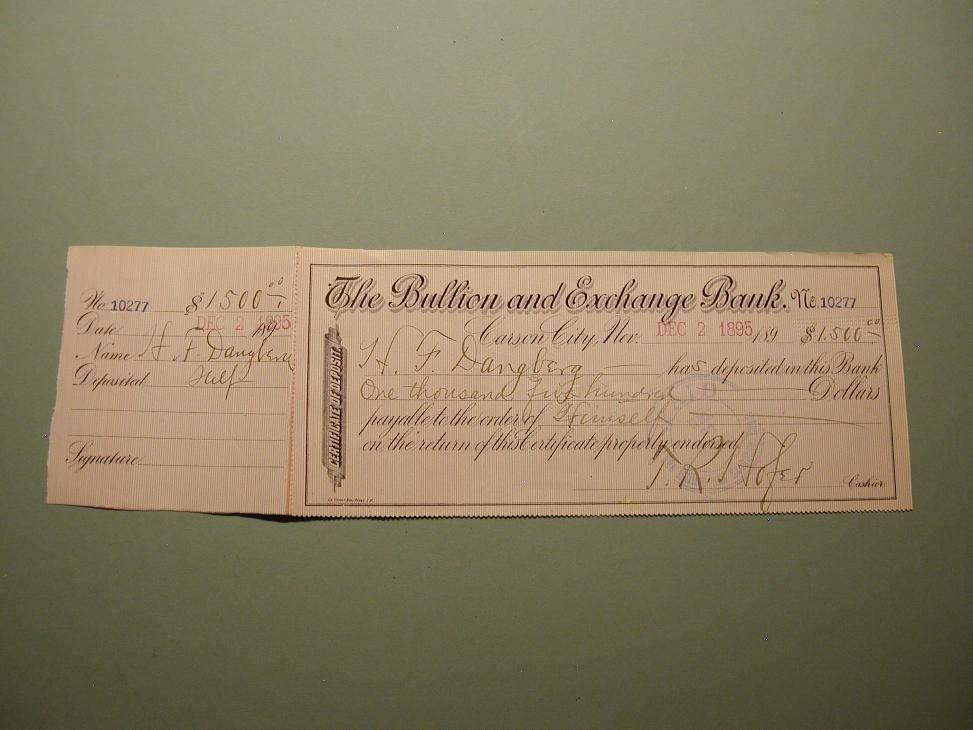 No. 10277 $1500 00
Date DEC 2 1895 189
Name H. F. Dangberg
Deposited Self
Signature
CERTIFICATE OF DEPOSIT
The Bullion and Exchange Bank. No. 10277
Carson City, Nev. DEC 2 1895 189 $1500 00
H. F. Dangberg has deposited in this Bank
One thousand five hundred Dollars
payable to the order of Himself
on the return of this Certificate properly endorsed
T. R. Hofer Cashier